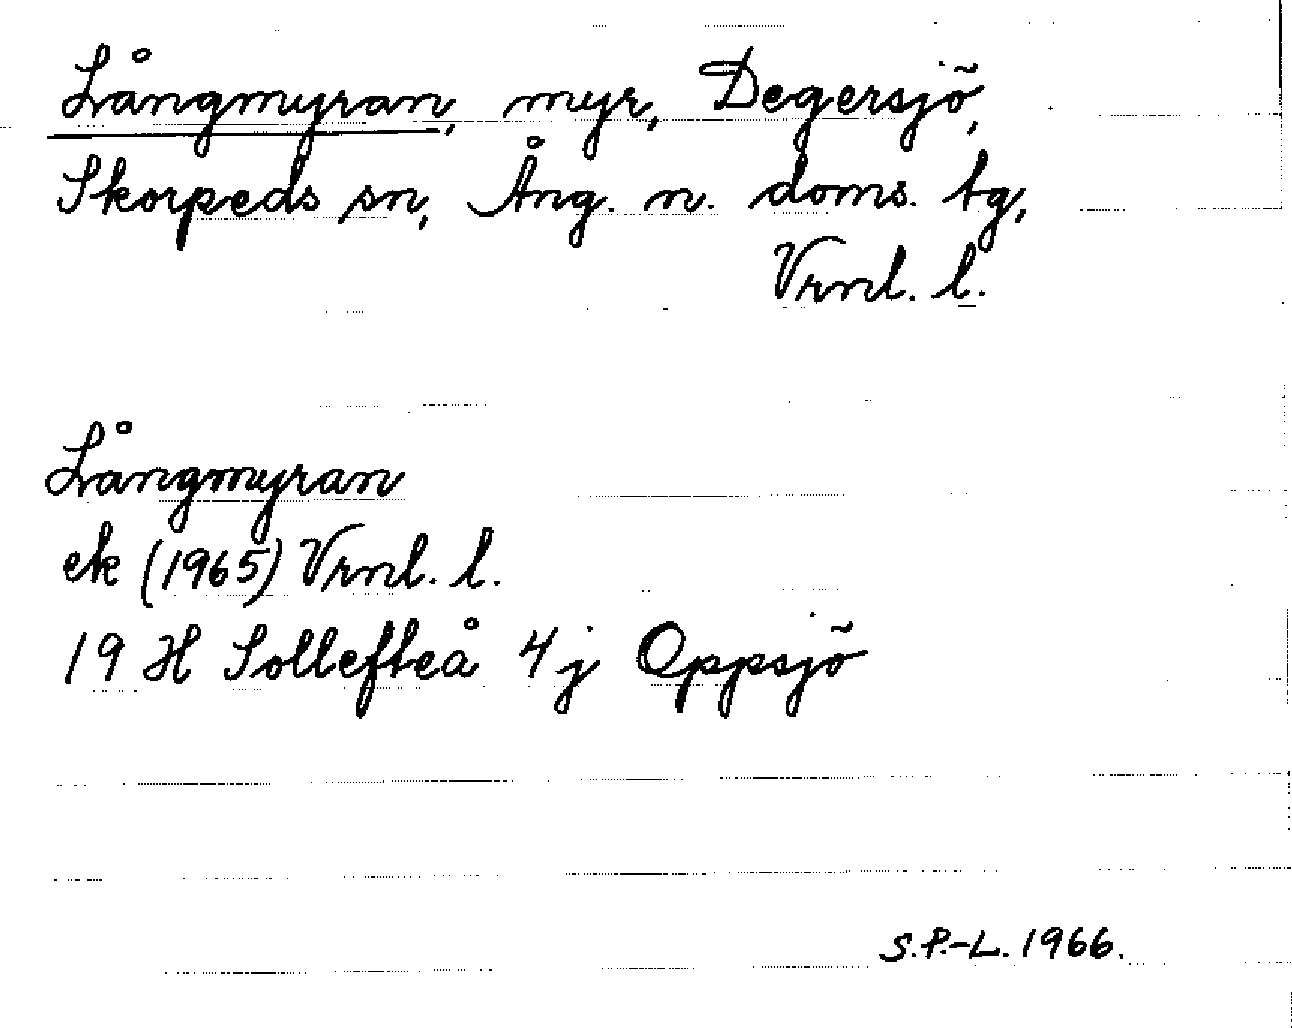 Långmyran, myr, Degersjö,
Skorpeds sn, Ång. n. doms. tg,
Vrnl. l.
Långmyran
ek (1965) Vrnl. l.
19 H Sollefteå 4 j Oppsjö
S.P.-L. 1966.